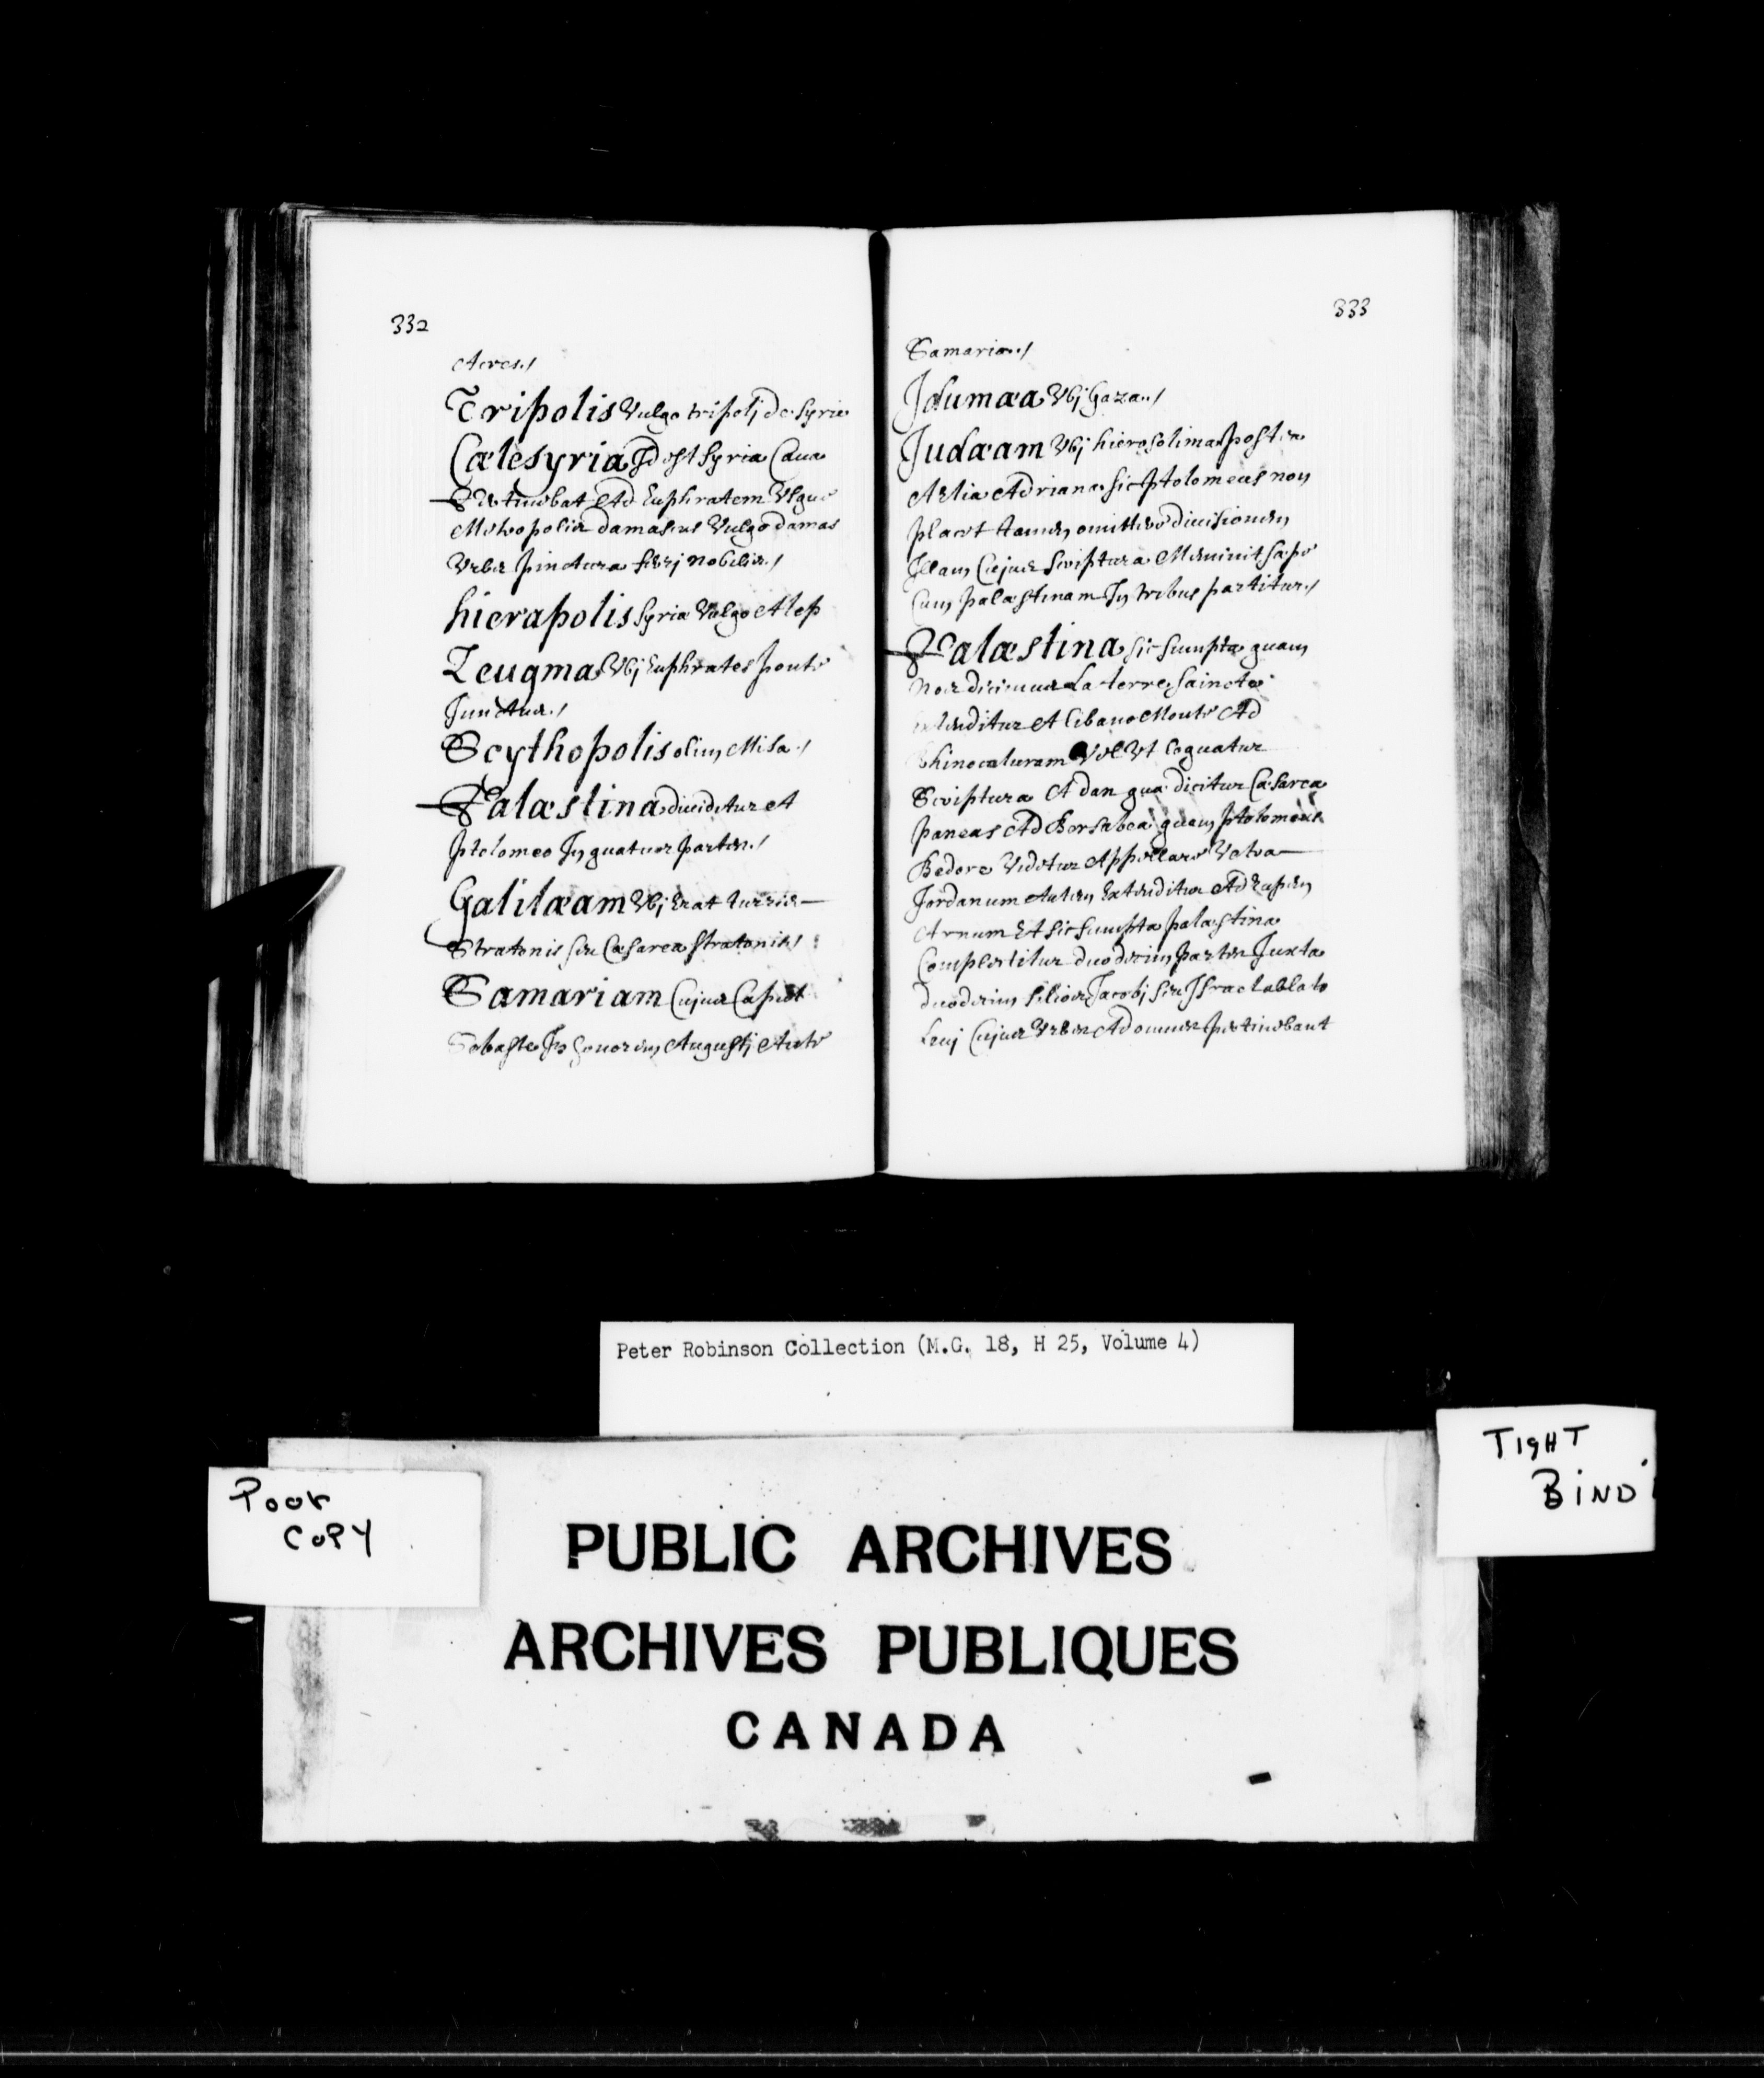 332
Acres./
Tripolis Vulgo tripolj de Syrie
Cœlesyria Id est Syria Caua
Pertinebat Ad Euphratem Vsque
Metropolis damascus Vulgo damas
Vrbs tinctura ferrj nobilis./
hierapolis Syriæ Vulgo Alep
Zeugma Vbj Euphrates ponte
Junctus./
Scythopolis olim Misa./
Palæstina diuiditur A
ptolomeo In quatuor partes./
Galilæam Vbj Erat turris
Stratonis seu Cæsarea stratonis./
Samariam Cujus Caput
Sebaste In honorem Augustj Ante
333
Samaria./
Idumæa Vbj Gaza./
Judæam Vbj hierosolima postea
Ælia Adriana sic ptolomeus non
placet tamen omittere diuisionem
Illam Cujus scriptura Meminit sæpe
Cum palæstinam In tribus partitur./
Palæstina sic sumpta quam
Nos dicimus La terre saincte
Extenditur A libano Monte Ad
Rhinocoluram Vel Vt loquatur
Scriptura A dan quæ dicitur Cæsarea
paneas Ad Bersabea quam ptolomeus
Bedoro Videtur Appellare Vltra
Jordanum Autem Extenditur Ad
Arnum Et sic sumpta palæstina
Complectitur duodecim partes Juxta
duodecim filios Jacobj seu Israel ablato
Leuj Cujus Vrbes Ad omnes pertinebant
Peter Robinson Collection (M.G. 18, H 25, Volume 4)
Poor
Copy
TIGHT
BIND
PUBLIC ARCHIVES
ARCHIVES PUBLIQUES
CANADA